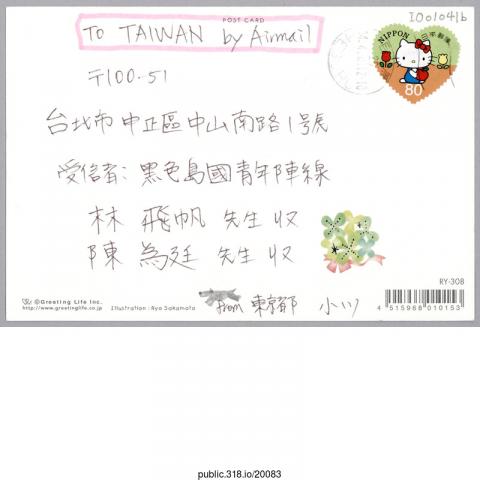 POST CARD
I001041b
TO TAIWAN by Airmail
NIPPON 日本郵便
80
〒100-51
台北市中正區中山南路1號
受信者：黑色島國青年陣線
林 飛帆 先生 收
陳 為廷 先生 收
RY-308
©Greeting Life Inc.
http://www.greetinglife.co.jp
Illustration : Ryo Sakamoto
from 東京都 小川
4 515966 010153
public.318.io/20083